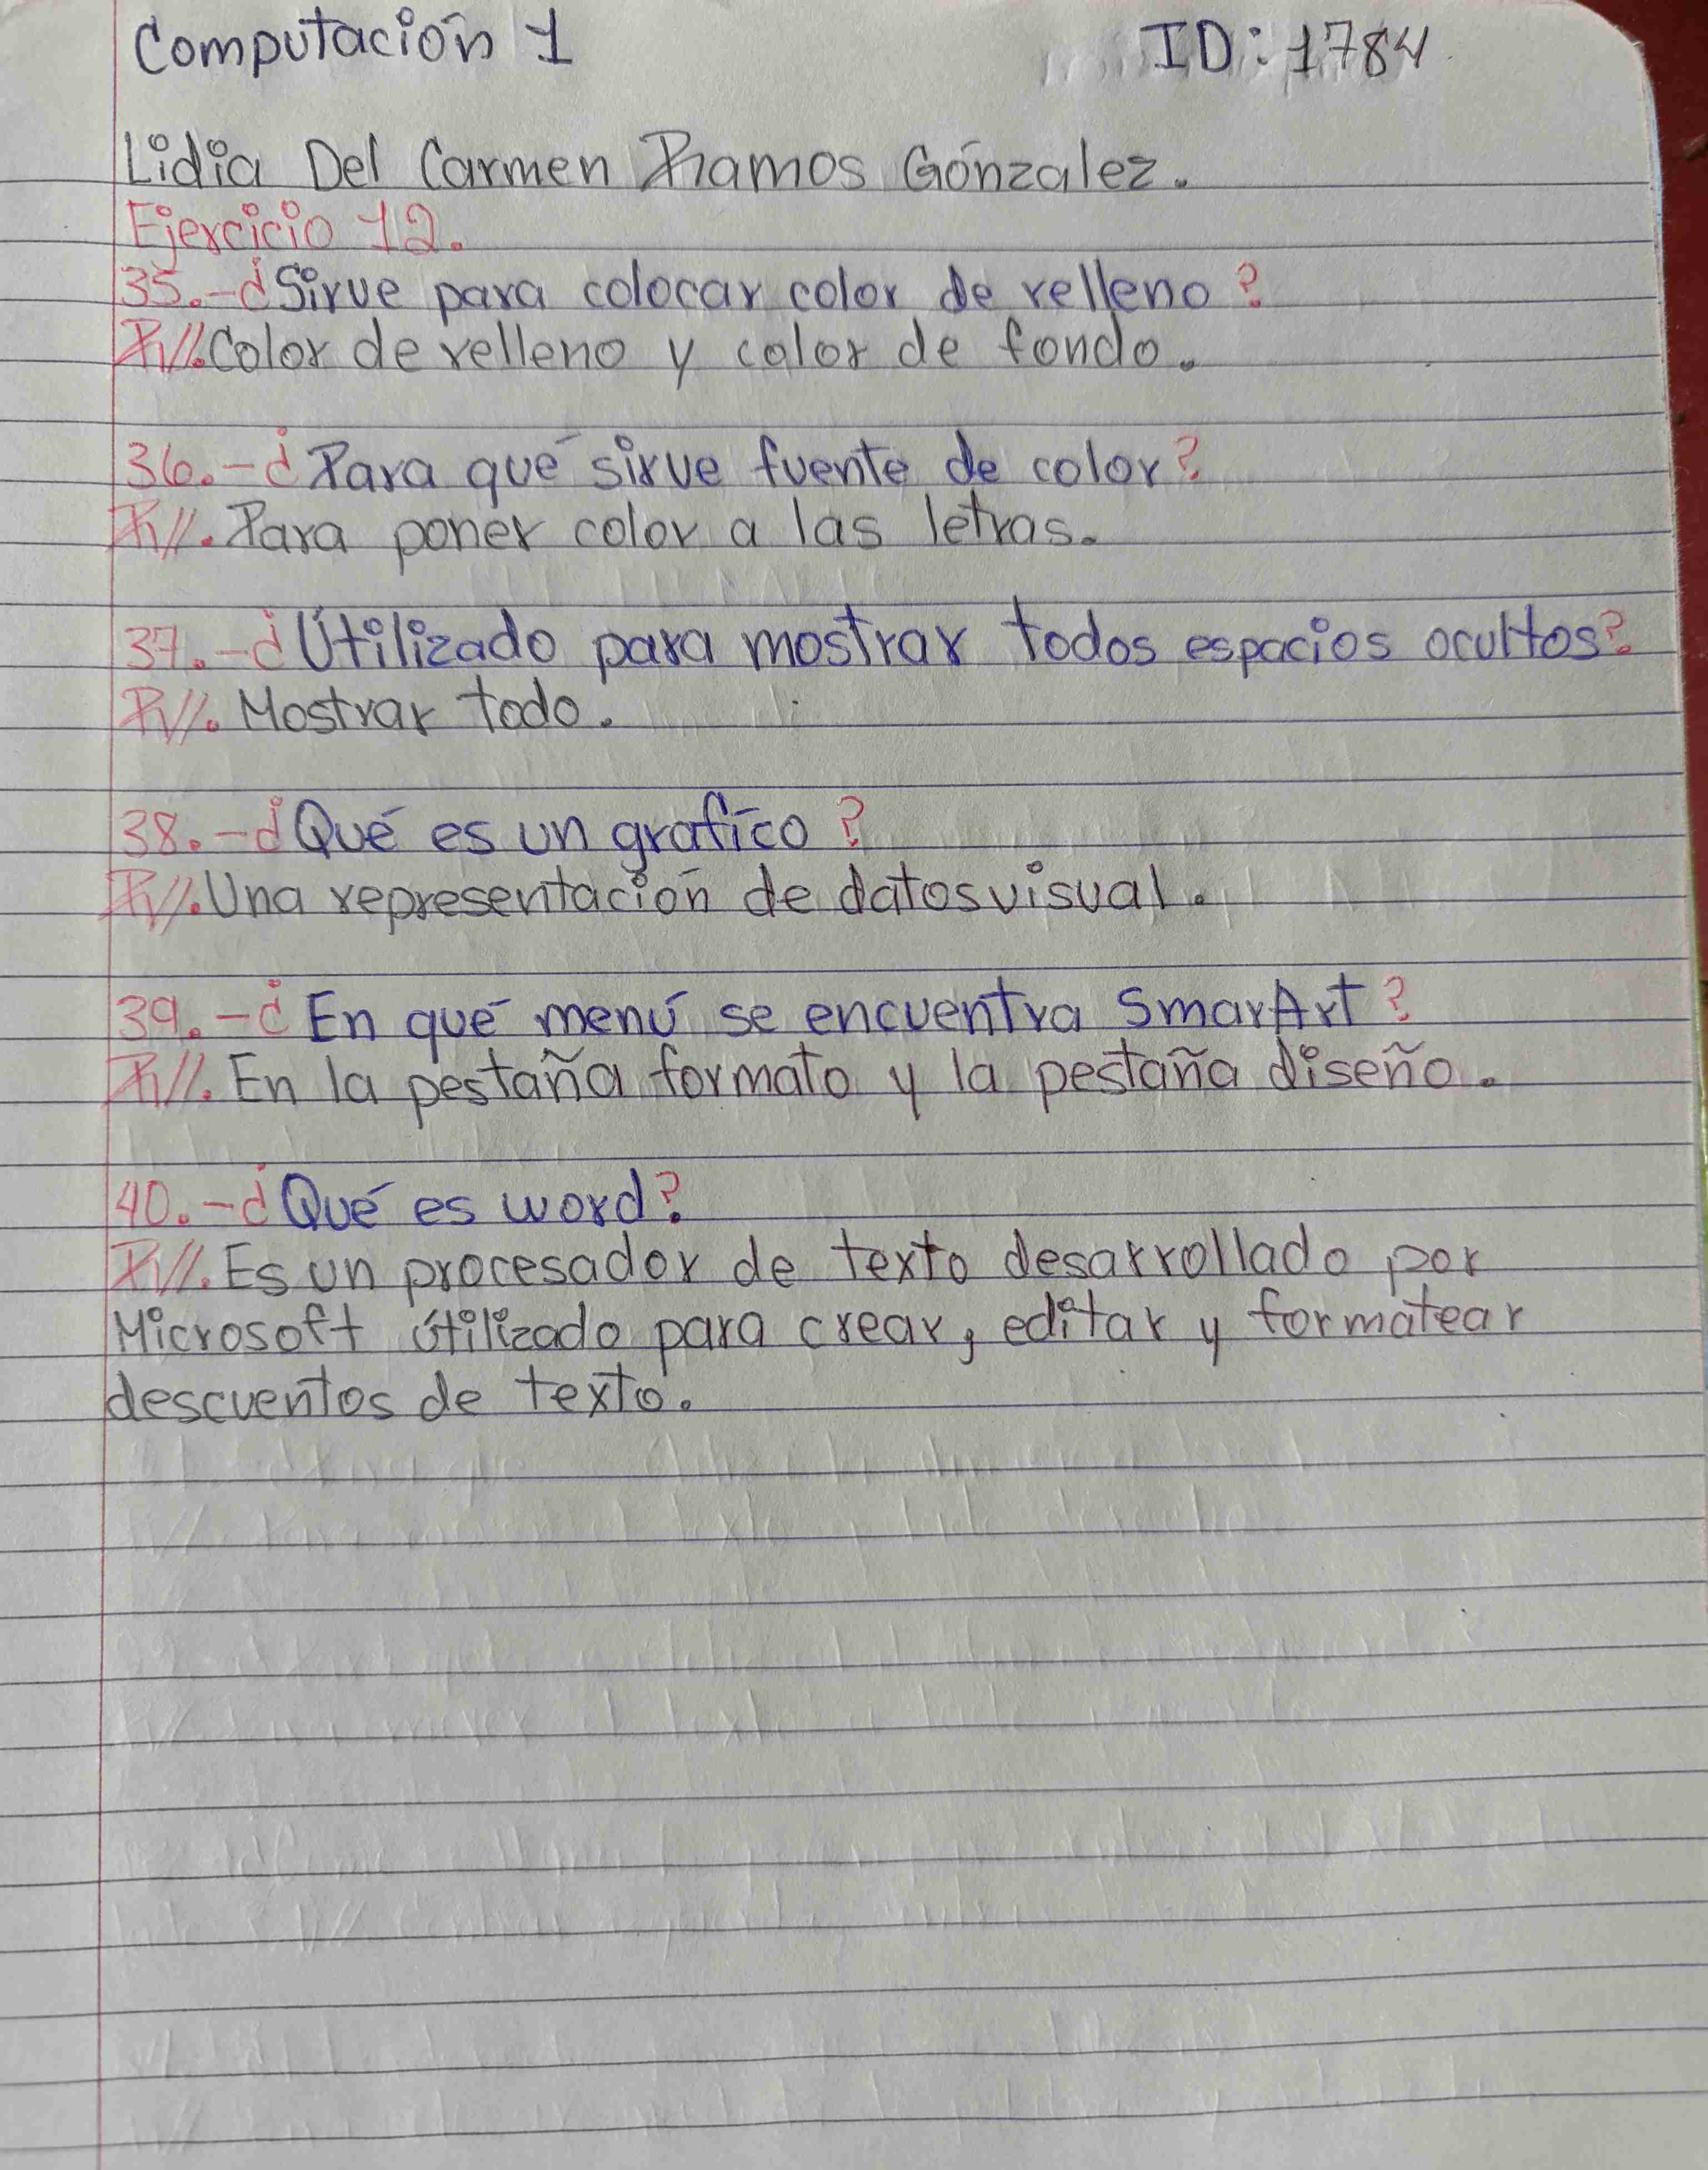 Computación 1 ID: 1784
Lidia Del Carmen Ramos Gónzalez.
Ejercicio 12.
35.-¿Sirve para colocar color de relleno?
R//. Color de relleno y color de fondo.
36.-¿Para qué sirve fuente de color?
R//. Para poner color a las letras.
37.-¿Útilizado para mostrar todos espacios ocultos?
R//. Mostrar todo.
38.-¿Qué es un grafico?
R//. Una representación de datos visual.
39.-¿En qué menú se encuentra SmarArt?
R//. En la pestaña formato y la pestaña diseño.
40.-¿Qué es word?
R//. Es un procesador de texto desarrollado por
Microsoft útilizado para crear, editar y formatear
descuentos de texto.